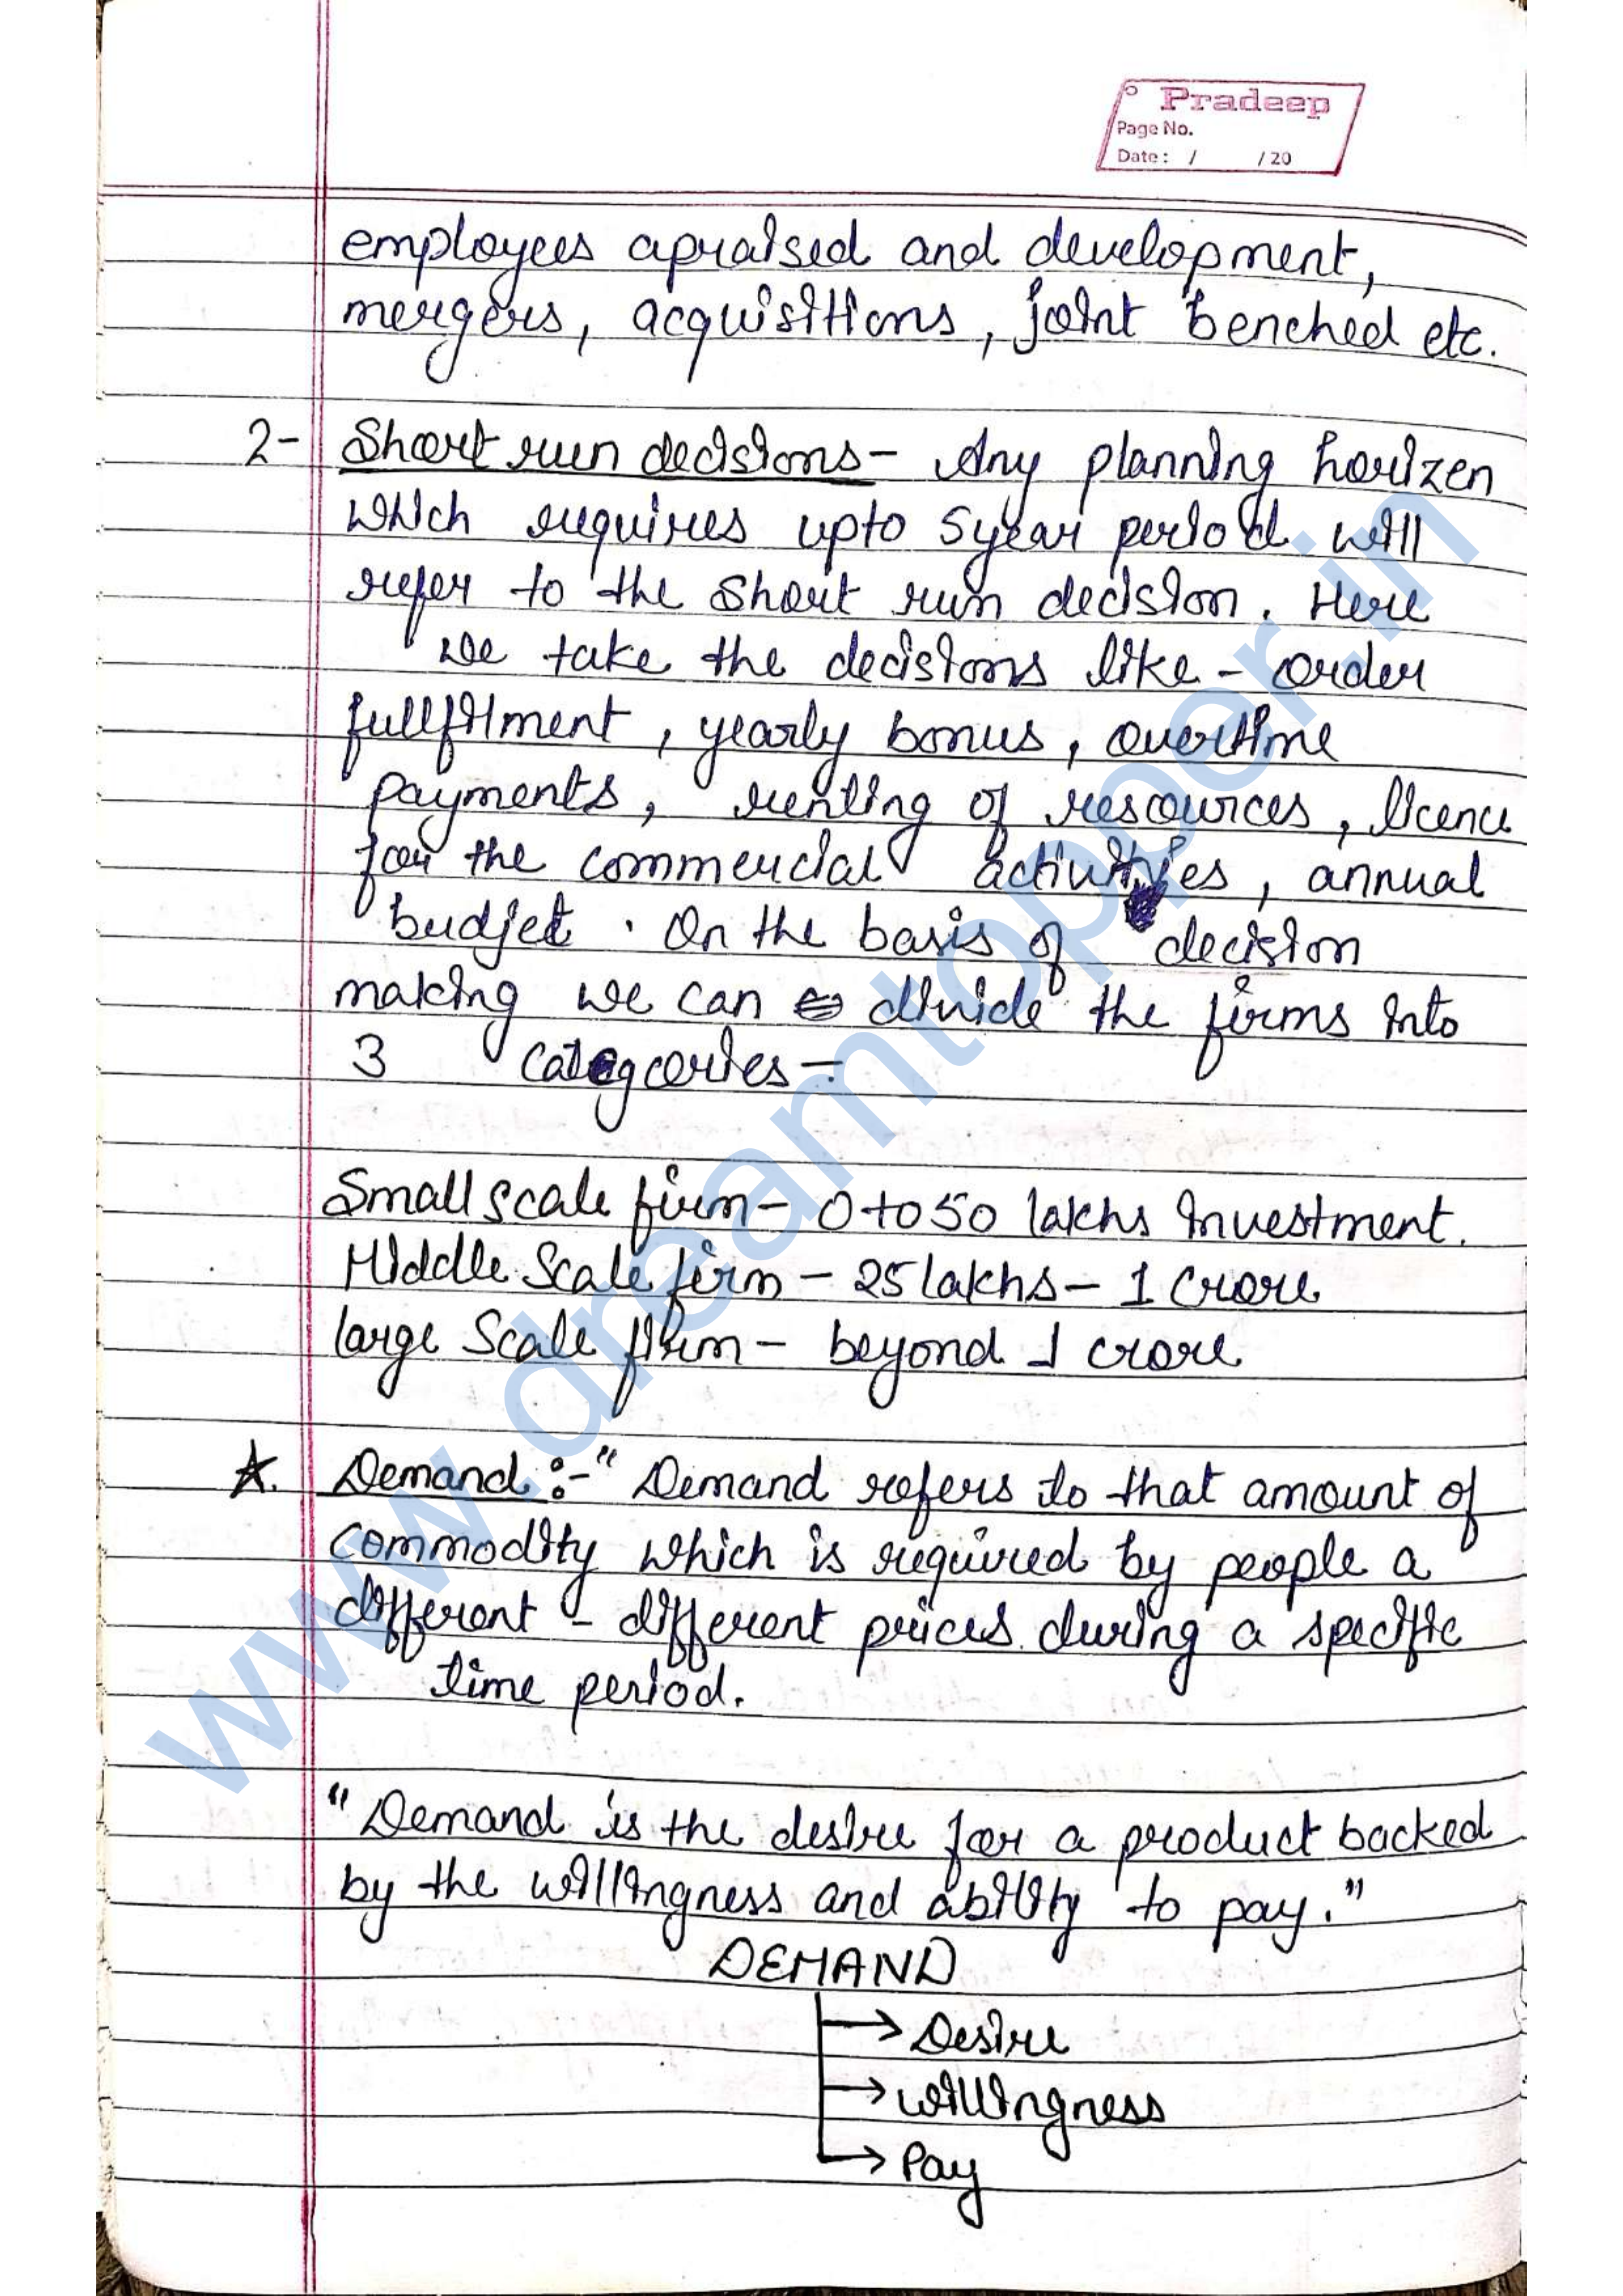 Pradeep
Page No.
Date: / /20
employees apraised and development,
mergers, acquisitions, joint benched etc.
2- Short run decisions- Any planning horizen
which requires upto 5year period will
refer to the short run decision. Here
we take the decisions like - order
fullfilment, yearly bonus, overtime
payments, renting of resources, licence
for the commercial activities, annual
budjet. On the basis of decision
making we can divide the firms into
3 categories -
Small scale firm- 0 to 50 lakhs investment.
Middle Scale firm - 25 lakhs - 1 crore
large Scale firm - beyond 1 crore
Demand :- " Demand refers to that amount of
commodity which is required by people a
different - different prices during a specific
time period.
"Demand is the desire for a product backed
by the willingness and ability to pay."
DEMAND
→ Desire
→ willingness
→ Pay
www.dreamtopper.in